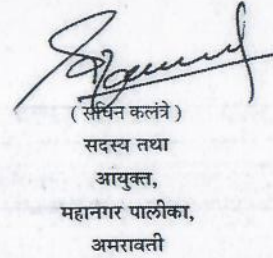 ( सचिन कलंत्रे )
सदस्य तथा
आयुक्त,
महानगर पालीका,
अमरावती